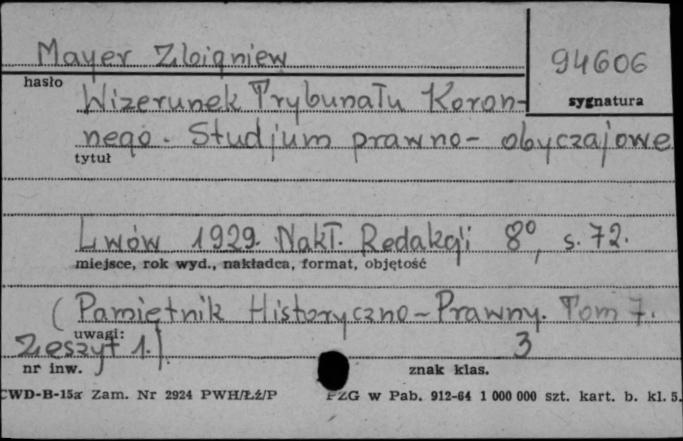 Mayer Zbigniew
94606
hasło
sygnatura
Wizerunek Trybunału Koron-
nego. Studjum prawno- obyczajowe
tytuł
Lwów 1929. Nakł. Redakcji 8°, s. 72.
miejsce, rok wyd., nakładca, format, objętość
(Pamiętnik Historyczno-Prawny. Tom 7.
uwagi:
Zeszyt 1.).
3
nr inw.
znak klas.
CWD-B-15a Zam. Nr 2924 PWH/Łż/P
PZG w Pab. 912-64 1 000 000 szt. kart. b. kl. 5.